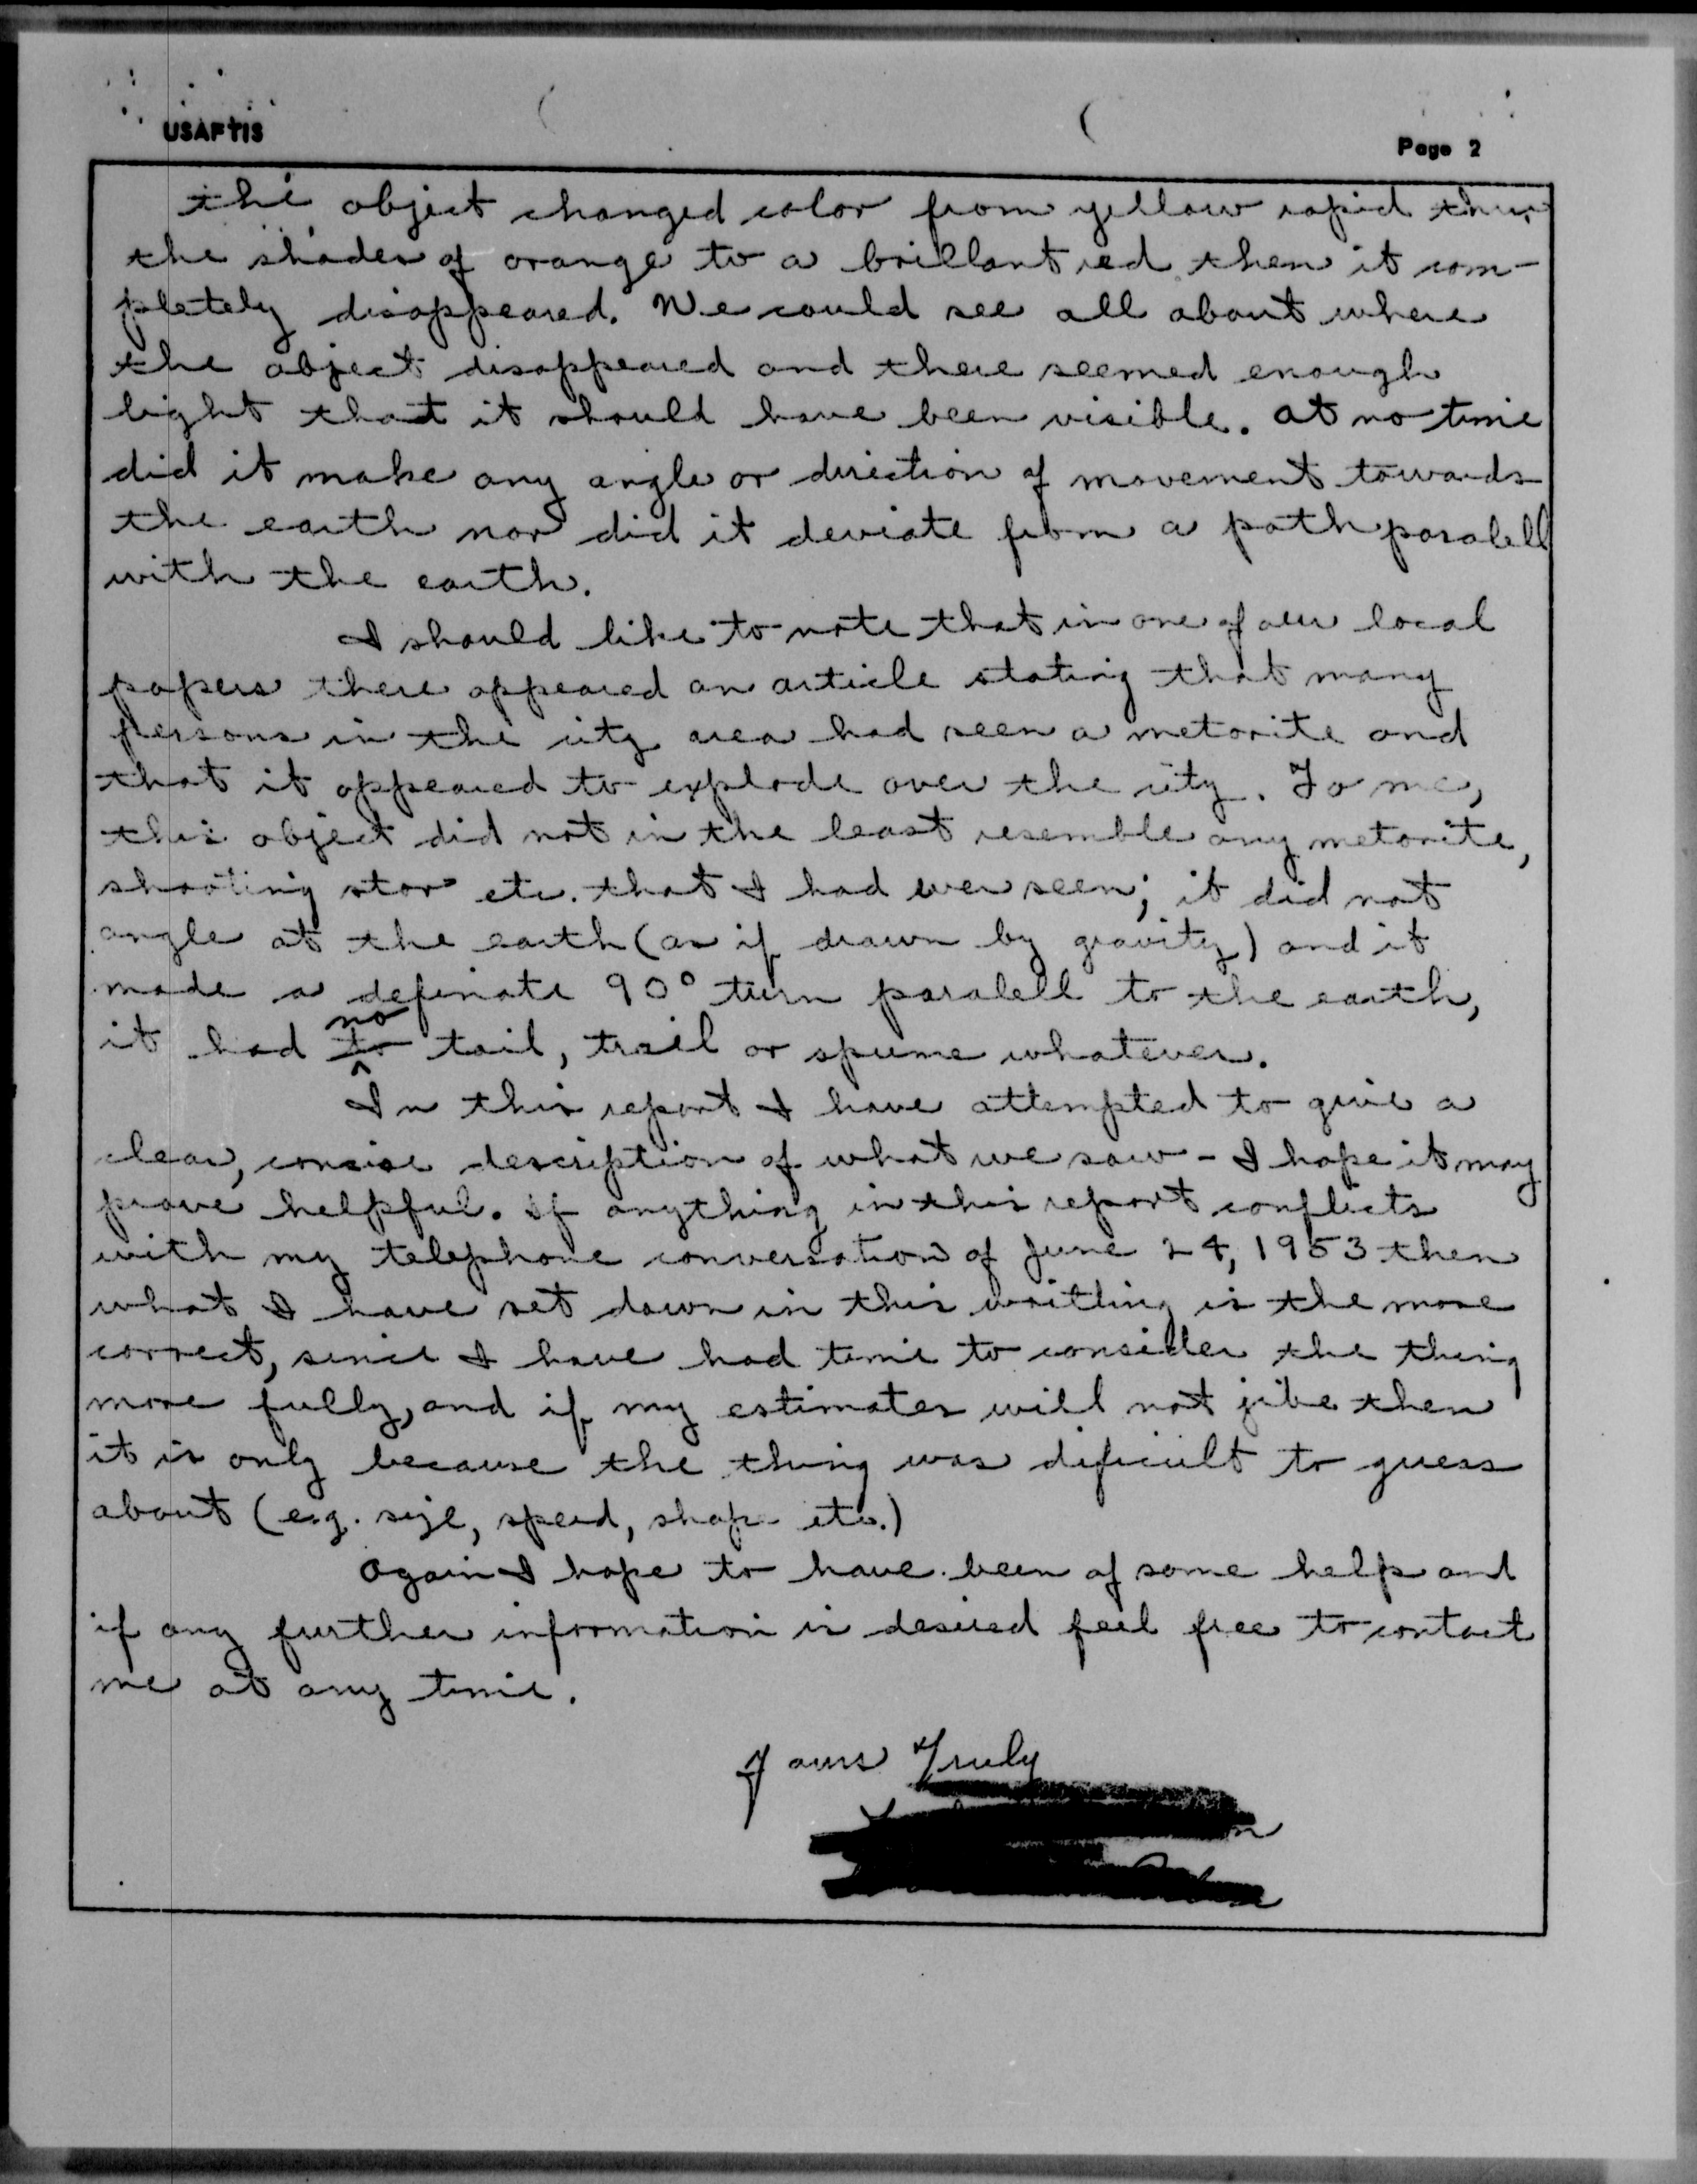 USAFTIS
Page 2
the object changed color from yellow rapid thru
the shades of orange to a brillant red then it com-
pletely disappeared. We could see all about where
the object disappeared and there seemed enough
light that it should have been visible. at no time
did it make any angle or direction of movement towards
the earth nor did it deviate from a path paralell
with the earth.
I should like to note that in one of our local
papers there appeared an article stating that many
persons in the city area had seen a metorite and
that it appeared to explode over the city. To me,
this object did not in the least resemble any metorite,
shooting star etc. that I had ever seen; it did not
angle at the earth (as if drawn by gravity) and it
made a definate 90° turn paralell to the earth,
it had no tail, trail or spume whatever.
In this report I have attempted to give a
clear, concise description of what we saw - I hope it may
prove helpful. If anything in this report conflicts
with my telephone conversation of June 24, 1953 then
what I have set down in this writting is the more
correct, since I have had time to consider the thing
more fully, and if my estimates will not jibe then
it is only because the thing was dificult to guess
about (e.g. size, speed, shape etc.)
Again I hope to have been of some help and
if any further information is desired feel free to contact
me at any time.
Yours Truly